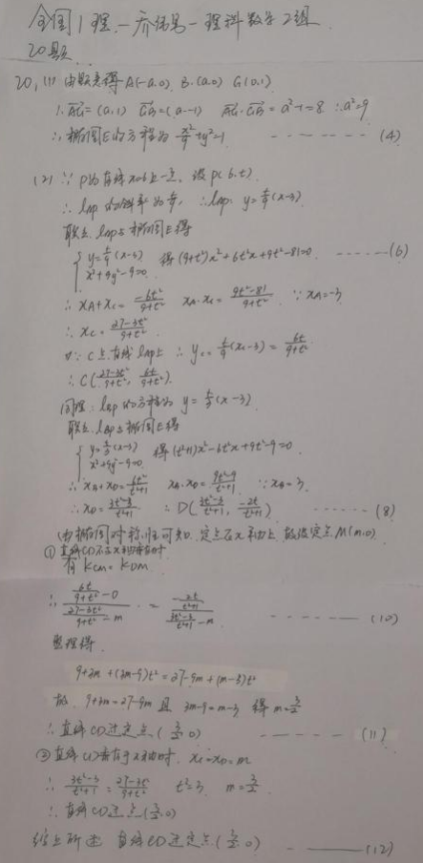 全国1理-乔伟另-理科数学2组
20题
20,(1) 由题意得A(-a,0), B.(a,0) G(0,1)
∴ AG=(a,1) GB=(a,-1) AG·GB=a²-1=8 ∴a²=9
∴椭圆E的方程为 x²/9+y²=1 ------- (4)
(2) ∵ P为直线x=6上一点, 设P(6,t)
∴ lAP的斜率为 t/9, ∴lAP: y=t/9(x+3)
联立lAP与椭圆E得
{ y=t/9(x+3) x²+9y²-9=0 得(9+t²)x²+6t²x+9t²-81=0 ----- (6)
∴ xA+xC=-6t²/9+t² xA·xC=9t²-81/9+t² ∵xA=-3
∴ xC=27-3t²/9+t²
又∵C在直线lAP上 ∴ yC=t/9(xC+3)=6t/9+t²
∴ C(27-3t²/9+t², 6t/9+t²)
同理: lBP的方程为 y=t/3(x-3)
联立lBP与椭圆E得
{ y=t/3(x-3) x²+9y²-9=0 得(t²+1)x²-6t²x+9t²-9=0
∴ xB+xD=6t²/t²+1 xB·xD=9t²-9/t²+1 ∵xB=3
∴ xD=3t²-3/t²+1 ∴ D(3t²-3/t²+1, -2t/t²+1) ------ (8)
由椭圆对称性可知, 定点在x轴上, 故设定点M(m,0)
① 直线CD不与x轴垂直时
有 kCM=kDM
∴ 6t/9+t² -0 / 27-3t²/9+t² -m = -2t/t²+1 / 3t²-3/t²+1 -m ------ (10)
整理得
9+3m+(3m-9)t²=27-9m+(m-3)t²
故, 9+3m=27-9m 且 3m-9=m-3 得m=3/2
∴直线CD过定点(3/2,0) ------ (11)
② 直线CD垂直于x轴时, xC=xD=m
∴ 3t²-3/t²+1=27-3t²/9+t² t²=3 m=3/2
∴直线CD过点(3/2,0)
综上所述 直线CD过定点(3/2,0) - ——(12)